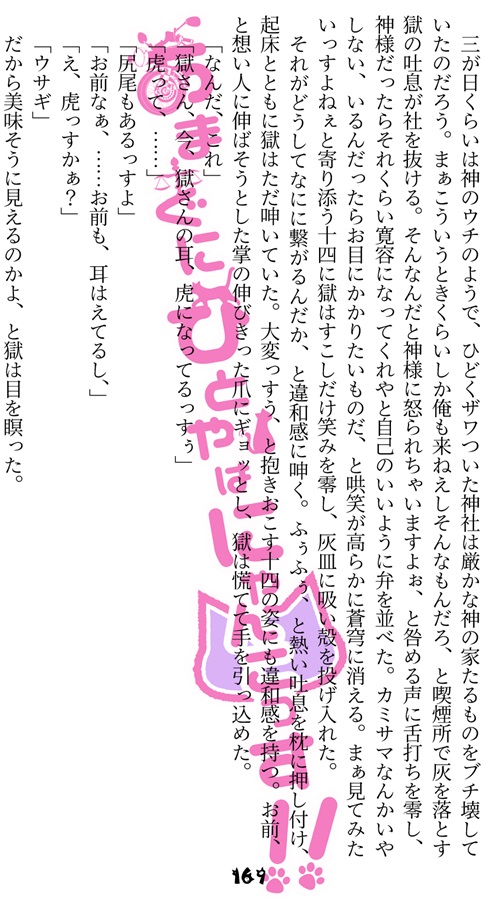 三が日くらいは神のウチのようで、ひどくザワついた神社は厳かな神の家たるものをブチ壊して
いたのだろう。まぁこういうときくらいしか俺も来ねえしそんなもんだろ、と喫煙所で灰を落とす
獄の吐息が社を抜ける。そんなんだと神様に怒られちゃいますよぉ、と咎める声に舌打ちを零し、
神様だったらそれくらい寛容になってくれやと自己のいいように弁を並べた。カミサマなんかいや
しない、いるんだったらお目にかかりたいものだ、と哄笑が高らかに蒼穹に消える。まぁ見てみた
いっすよねぇと寄り添う十四に獄はすこしだけ笑みを零し、灰皿に吸い殻を投げ入れた。
それがどうしてなにに繋がるんだか、と違和感に呻く。ふぅふぅ、と熱い吐息を枕に押し付け、
起床とともに獄はただ呻いていた。大変っすう、と抱きおこす十四の姿にも違和感を持つ。お前、
と想い人に伸ばそうとした掌の伸びきった爪にギョッとし、獄は慌てて手を引っ込めた。
「なんだ、これ」
「獄さん、今、獄さんの耳、虎になってるっすぅ」
「虎って、……」
「尻尾もあるっすよ」
「お前なぁ、……お前も、耳はえてるし、」
「え、虎っすかぁ？」
「ウサギ」
だから美味そうに見えるのかよ、と獄は目を瞑った。
169